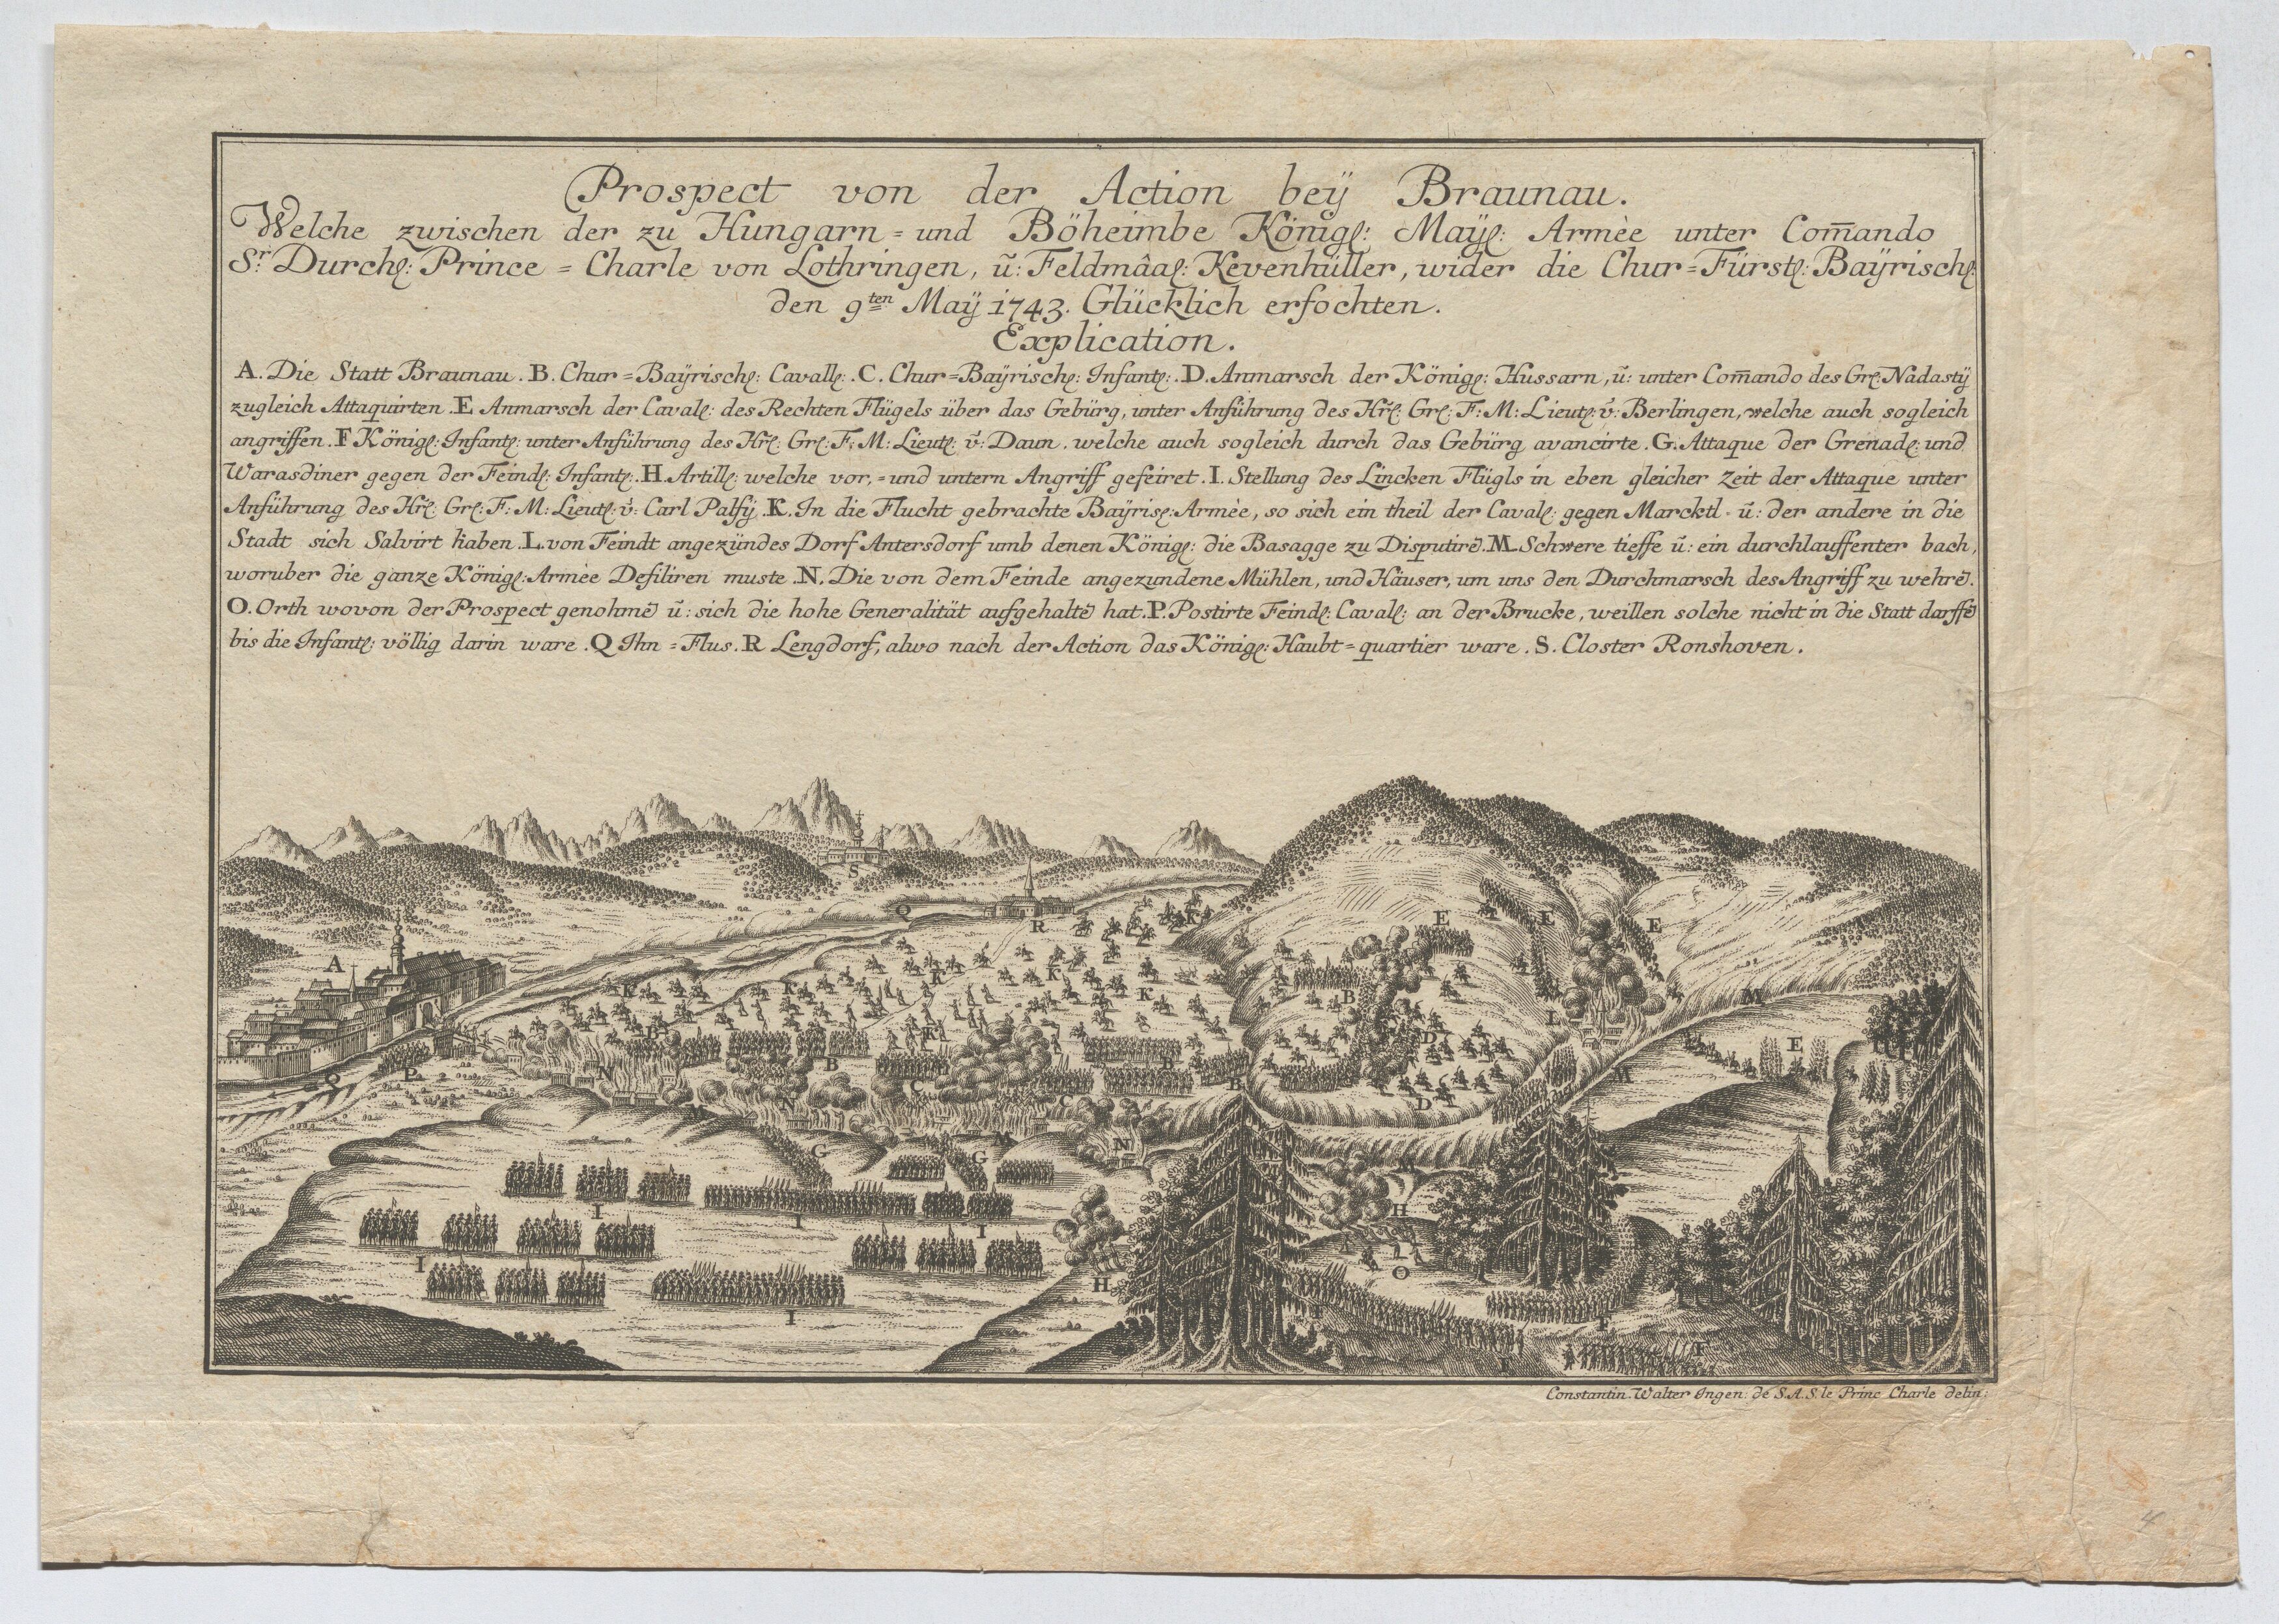 Prospect von der Action beÿ Braunau.
Welche zwischen der zu Hungarn = und Böheimbe Königl: Maÿl: Armèe unter Com̄ando
Sr: Durchl: Prince = Charle von Lothringen, ũ: Feldmâal: Kevenhüller, wider die Chur = Fürstl: Baÿrischl:
den 9ten Maÿ 1743. Glücklich erfochten.
Explication.
A. Die Statt Braunau. B. Chur = Baÿrischl: Cavall: . C. Chur = Baÿrischl: Infantl: . D. Anmarsch der Königl: Hussarn, ũ: unter Com̄ando des Grl: Nadastÿ
zugleich Attaquirten. E Anmarsch der Caval: des Rechten Flügels über das Gebürg, unter Anführung des Hrl: Grl: F: M: Lieutl: v: Berlingen, welche auch sogleich
angriffen. F Königl: Infantl: unter Anführung des Hrl: Grl: F: M: Lieutl: v: Daun. welche auch sogleich durch das Gebürg avancirte. G. Attaque der Grenadl: und
Warasdiner gegen der Feindl: Infantl: . H. Artill: welche vor, = und untern Angriff gefeiret. I. Stellung des Lincken Flügls in eben gleicher Zeit der Attaque unter
Anführung des Hrl: Grl: F: M: Lieutl: v: Carl Palfÿ. K. In die Flucht gebrachte Baÿrisl: Armèe, so sich ein theil der Caval: gegen Marcktl ũ: der andere in die
Stadt sich Salvirt haben. L. von Feindt angezündes Dorf Antersdorf umb denen Königl: die Basagge zu Disputirē. M. Schwere tieffe ũ: ein durchlauffenter bach,
woruber die ganze Königl: Armèe Defiliren muste. N. Die von dem Feinde angezundene Mühlen, und Häuser, um uns den Durchmarsch des Angriff zu wehrē.
O. Orth wovon der Prospect genohmē ũ: sich die hohe Generalität aufgehaltē hat. P. Postirte Feindl: Caval: an der Brucke, weillen solche nicht in die Statt darffē
bis die Infantl: völlig darin ware. Q Ihn = Flus. R Lengdorf, alwo nach der Action das Königl: Haubt = quartier ware. S. Closter Ronshoven.
S
Q
R
K
E
E
E
A
K
K
K
K
K
B
M
B
K
D
L
E
P
Q
N
B
C
B
B
M
M
N
C
D
G
M
G
N
M
I
I
I
H
I
H
O
I
F
F
F
F
Constantin. Walter Ingen: de S. A. S. le Princ Charle delin:
4